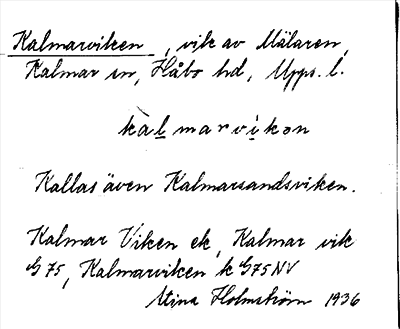 Kalmarviken, vik av Mälaren,
Kalmar sn, Håbo hd, Upps. l.
kàl marvikən
Kallas även Kalmarsandsviken.
Kalmar Viken ek, Kalmar vik
G 75, Kalmarviken k G75NV
Stina Holmström 1936